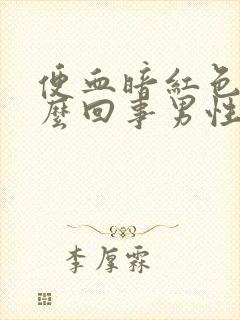 便血暗红色
麽回事男性
李厚霖